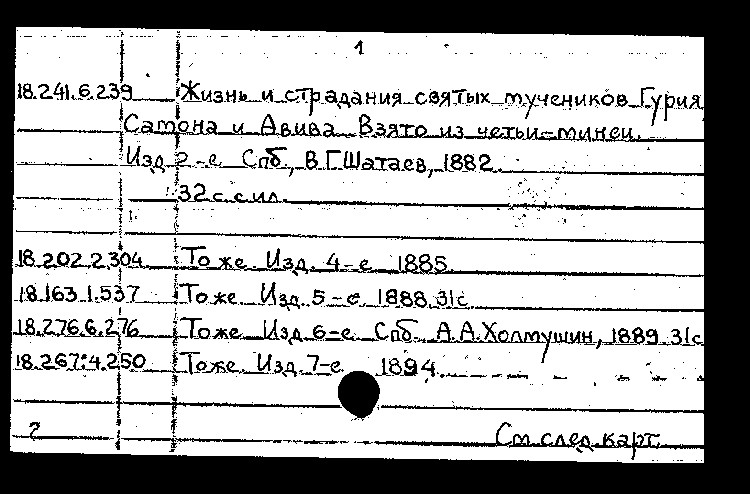 1
18.241.6.239 Жизнь и страдания святых мучеников Гурия,
Самона и Авива. Взято из четьи-минеи.
Изд. 2-е Спб., В.Г.Шатаев, 1882.
32 с. с ил.
18.202.2.304 То же. Изд. 4-е 1885.
18.163.1.537 То же. Изд. 5-е. 1888. 31с.
18.276.6.276 То же. Изд. 6-е. Спб. А.А.Холмушин, 1889. 31с
18.267.4.250 То же. Изд. 7-е 1894.
? См. след. карт.